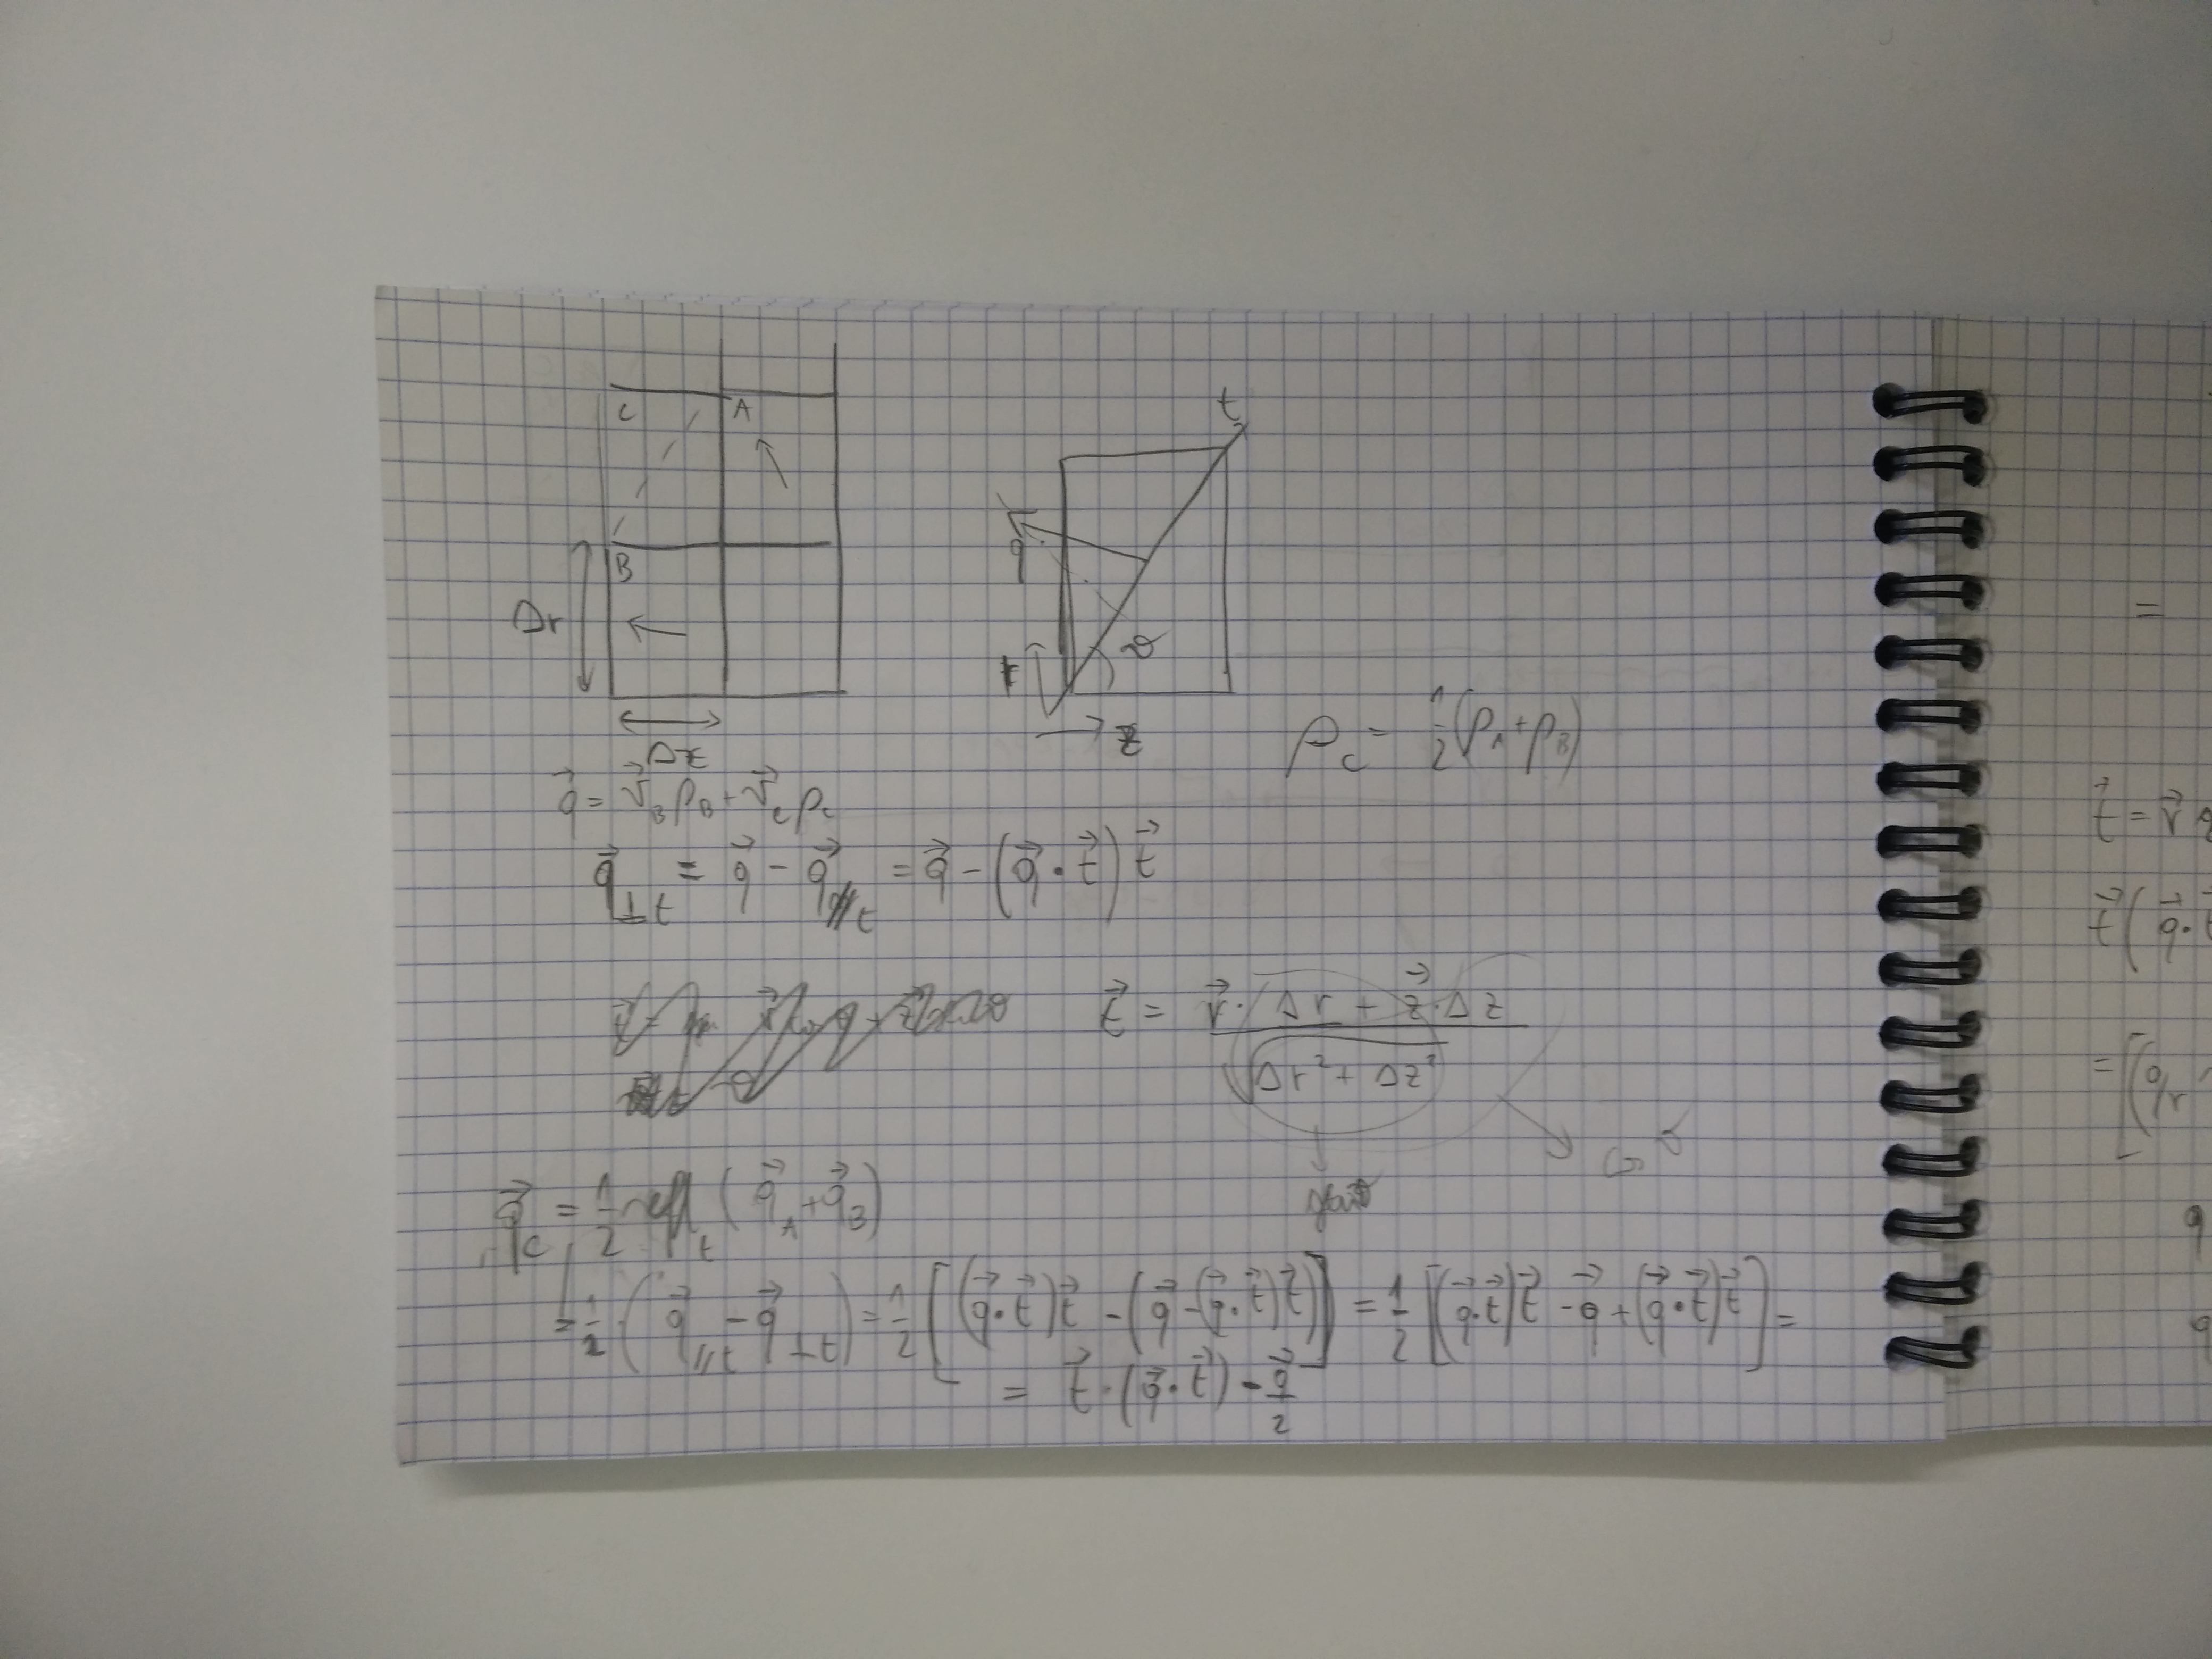 C A
t
q
B
Δr
ϑ
r
z
Δz
ρ_C = 1/2 (ρ_A + ρ_B)
q⃗ = v⃗_B ρ_B + v⃗_C ρ_C
q⃗_⊥t = q⃗ - q⃗_∥t = q⃗ - (q⃗ · t⃗) t⃗
t⃗ = (r⃗ · Δr + z⃗ · Δz) / √(Δr² + Δz²)
q⃗_C = 1/2 refl_t (q⃗_A + q⃗_B)
= 1/2 (q⃗_∥t - q⃗_⊥t) = 1/2 [(q⃗ · t⃗) t⃗ - (q⃗ - (q⃗ · t⃗) t⃗)] = 1/2 [(q⃗ · t⃗) t⃗ - q⃗ + (q⃗ · t⃗) t⃗] =
= t⃗ · (q⃗ · t⃗) - q⃗/2
=
t⃗ = r⃗
t⃗ (q⃗ ·
= [(q_r
q
q